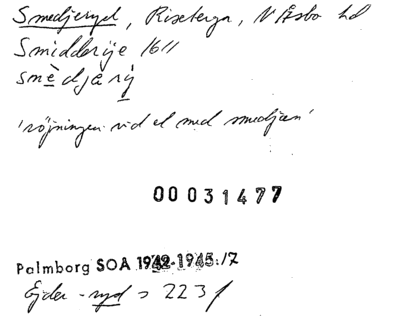 Smedjeryd, Riseberga, N Åsbo hd
Smidderije 1611
smèdjàrý
'röjningen vid el med smedjan'
00031477
Palmborg SOA 1942-1945:/7
Ejder -ryd s 223 f